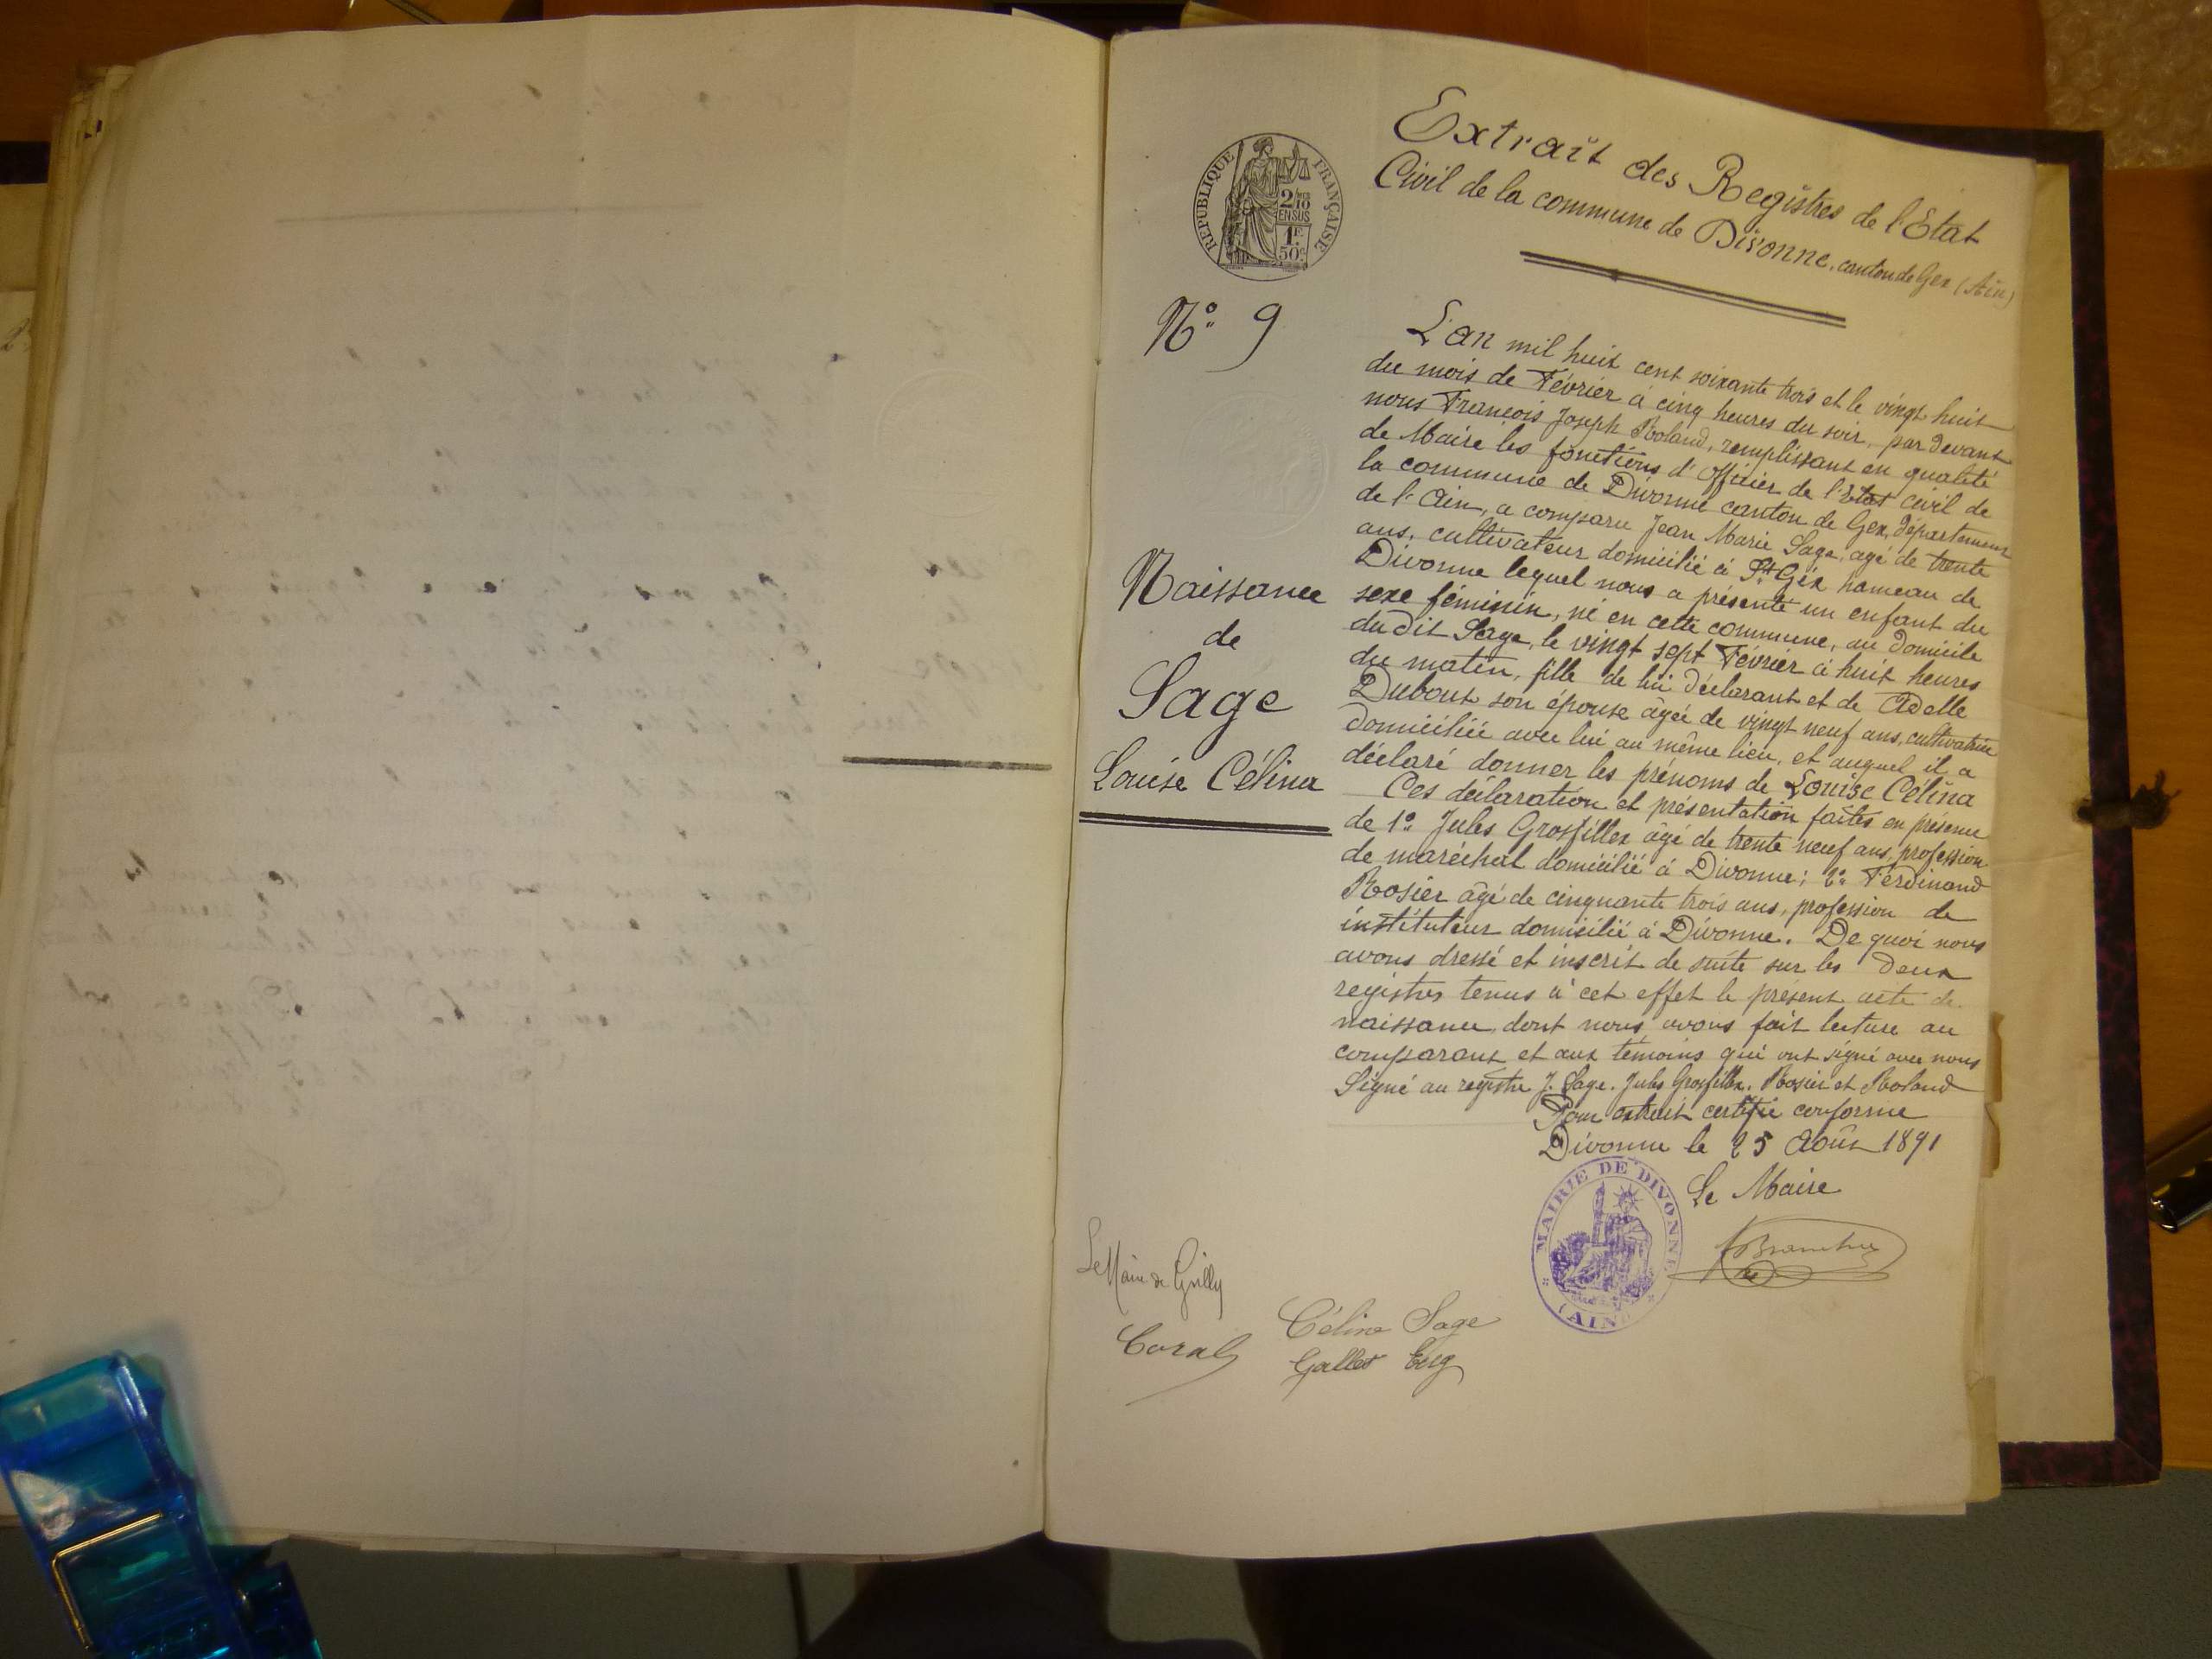 Extrait des Registres de l'Etat
Civil de la commune de Divonne, canton de Gex (Ain)
REPUBLIQUE FRANÇAISE
2/10
EN SUS
1F
50c
No. 9
Naissance
de
Sage
Louise Célina
L'an mil huit cent soixante trois et le vingt huit
du mois de Février à cinq heures du soir, par devant
nous François Joseph Roland, remplissant en qualité
de Maire les fonctions d'officier de l'Etat civil de
la commune de Divonne canton de Gex, département
de l'Ain, a comparu Jean Marie Sage, agé de trente
ans, cultivateur domicilié à St Gix hameau de
Divonne lequel nous a présenté un enfant du
sexe féminin, né en cette commune, au domicile
du dit Sage, le vingt sept Février à huit heures
du matin, fille de lui déclarant et de Adelle
Dubout son épouse âgée de vingt neuf ans, cultivatrice
domiciliée avec lui au même lieu, et auquel il a
déclaré donner les prénoms de Louise Célina
Ces déclaration et présentation faites en présence
de 1o. Jules Grosfillex âgé de trente neuf ans, profession
de maréchal domicilié à Divonne; 2o. Ferdinand
Rosier âgé de cinquante trois ans, profession de
instituteur domicilié à Divonne. De quoi nous
avons dressé et inscrit de suite sur les deux
registres tenus à cet effet le présent acte de
naissance, dont nous avons fait lecture au
comparant et aux témoins qui ont signé avec nous
Signé au registre J. Sage. Jules Grosfillex. Rosier et Roland
Pour extrait certifié conforme
Divonne le 25 Août 1891
Le Maire
MAIRIE DE DIVONNE
(AIN)
Le Maire de Grilly
Céline Sage
Gallet Eug